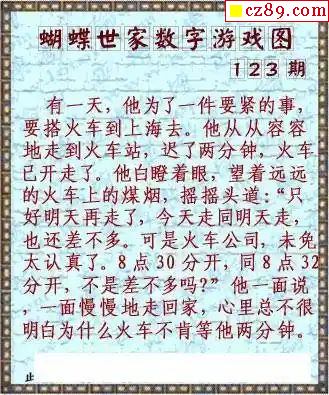 cz89.com
蝴蝶世家数字游戏图
123期
有一天，他为了一件要紧的事，
要搭火车到上海去。他从从容容
地走到火车站，迟了两分钟，火车
已开走了。他白瞪着眼，望着远远
的火车上的煤烟，摇摇头道：“只
好明天再走了，今天走同明天走，
也还差不多。可是火车公司，未免
太认真了。8点30分开，同8点32
分开，不是差不多吗?”他一面说，
一面慢慢地走回家，心里总不很
明白为什么火车不肯等他两分钟。